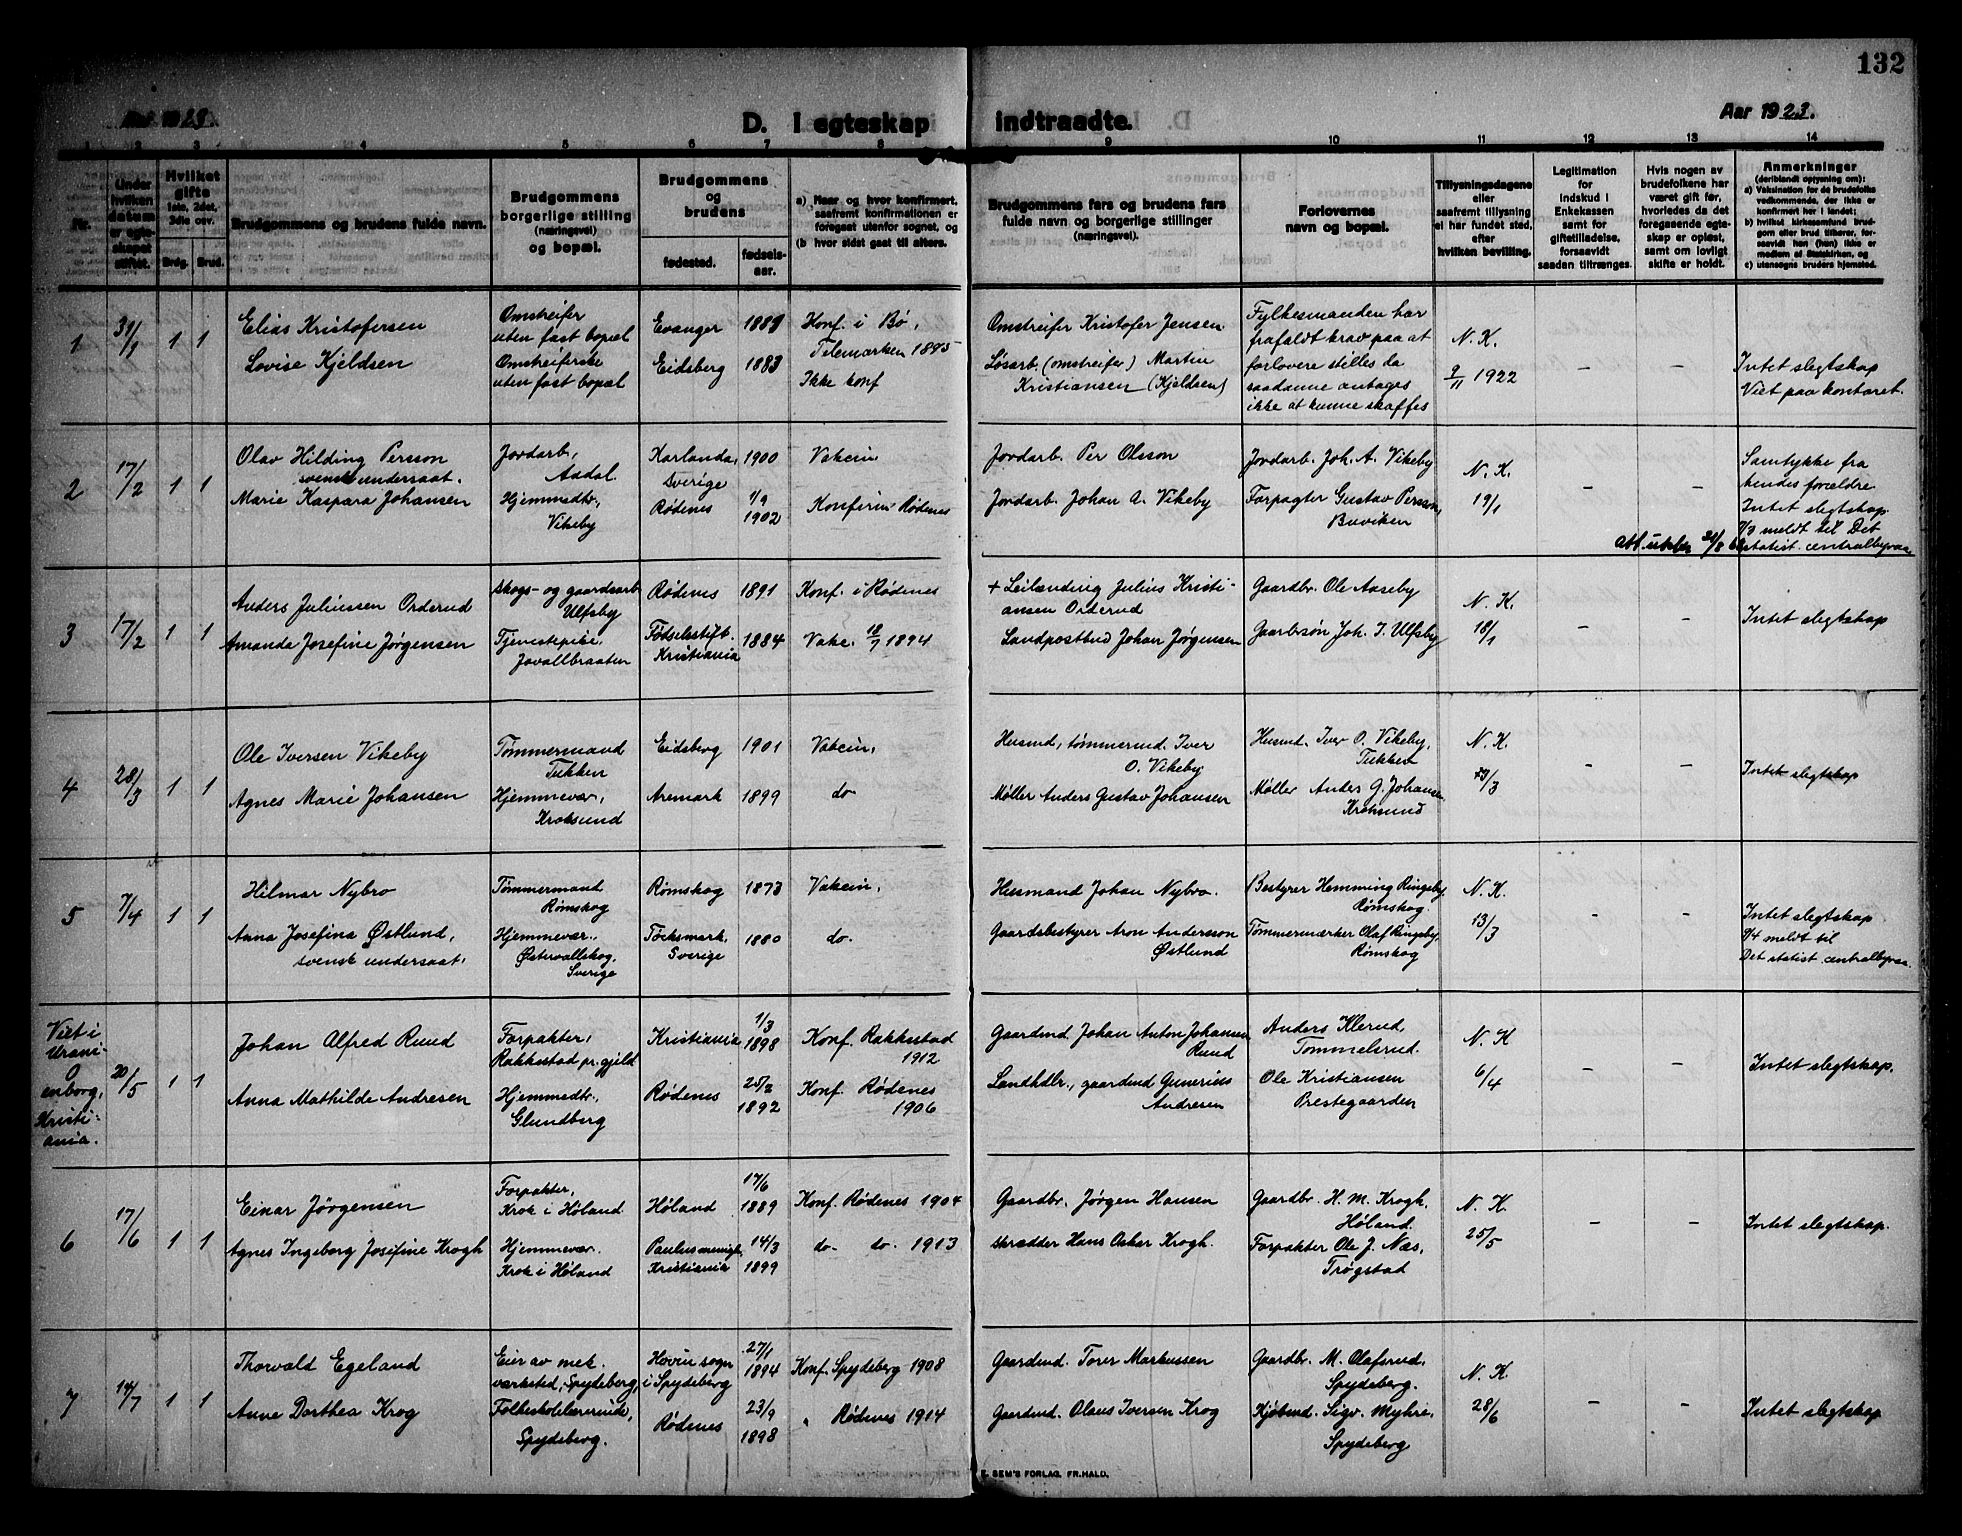 132
Aar 1923.
Aar 1923.
D. I egteskap indtraadte.
1 2 3 4 5 6 7 8 9 10 11 12 13 14
Nr.
Under hvilken datum er egteskapet stiftet.
Hvilket gifte 1ste, 2det, 3die osv.
Brdg. Brud.
Brudgommens og brudens fulde navn.
Brudgommens borgerlige stilling (næringsvei) og bopæl.
Brudgommens og brudens
fødested.
fødselsaar.
a) Naar og hvor konfirmert, saafremt konfirmationen er foregaat utenfor sognet, og
(b hvor sidst gaat til alters.
Brudgommens fars og brudens fars fulde navn og borgerlige stillinger (næringsvei).
Forlovernes navn og bopæl.
Tillysningsdagene eller saafremt tillysning ei har fundet sted, efter hvilken bevilling.
Legitimation for Indskud i Enkekassen samt for giftetilladelse, forsaavidt saadan tiltrænges.
Hvis nogen av brudefolkene har været gift før, hvorledes da det foregaaende egteskap er opløst, samt om lovligt skifte er holdt.
Anmerkninger (deriblandt oplysning om):
a) Vaksination for de brudefolks vedkommende, der ikke er konfirmert her i landet;
b) hvilket kirkesamfund brudgom eller brud tilhører, forsaavidt han (hun) ikke er medlem af Statskirken, og
c) utensogns bruders hjemsted.
1 31/1 1 1
Elias Kristofersen
Lovise Kjeldsen
Omstreifer
uten fast bopæl
Omstreiferske
uten fast bopæl
Evanger 1889
Eidsberg 1883
Konf. i Bø,
Telemarken 1895
Ikke konf
Omstreifer Kristofer Jensen
Løsarb. (omstreifer) Martin
Kristiansen (Kjeldsen)
Fylkesmanden har
frafaldt krav paa at
forlovere stilles da
saadanne antages
ikke at kunne skaffes
N. K.
9/11 1922
– –
Intet slegtskap
Viet paa kontoret.
2 17/2 1 1
Olav Hilding Persson
svensk undersaat.
Marie Kaspara Johansen
Jordarb.,
Aadal.
Hjemmedtr.,
Vikeby
Karlanda, 1900
Sverige
Rødenes 1/9 1902
Vakcin
Konf. i Rødenes
Jordarb. Per Olsson
Jordarb. Johan A. Vikeby
Jordarb. Joh. A. Vikeby
Forpagter Gustav Persson,
Buviken
N. K.
19/1
– –
Samtykke fra
hendes forældre
Intet slegtskap.
1/3 meldt til Det
statist. centralbyraa
3 17/2 1 1
Anders Juliussen Orderud
Amanda Josefine Jørgensen
Skogs- og gaardsarb.
Ulfsby
Tjenestepike,
Jovallbraaten
Rødenes 1891
Fødselsstift. 1884
Kristiania
Konf. i Rødenes
Vakc. 18/7 1894
+ Leilænding Julius Kristi-
ansen Orderud
Landpostbud Johan Jørgensen
Gaardbr. Ole Aaseby
Gaardbsøn Joh. J. Ulfsby
N. K.
18/1
– –
Intet slegtskap
4 28/3 1 1
Ole Iversen Vikeby
Agnes Marie Johansen
Tømmermand
Tukken
Hjemmevær.,
Kroksund
Eidsberg 1901
Aremark 1899
Vakcin.
do
Husmd., tømmermd. Iver
O. Vikeby
Møller Anders Gustav Johansen
Husmd. Iver O. Vikeby,
Tukken
Møller Anders G. Johansen
Kroksund
N. K.
13/3
– –
Intet slegtskap
5 7/4 1 1
Hilmar Nybro
Anna Josefina Østlund,
svensk undersaat.
Tømmermand
Rømskog
Hjemmevær.,
Østervallskog,
Sverige
Rømskog 1873
Töcksmark, 1880
Sverige
Vakcin.
do.
Husmand Johan Nybro.
Gaardsbestyrer Aron Andersson
Østlund
Bestyrer Hemming Ringsby,
Rømskog.
Tømmermærker Olaf Ringsby,
Rømskog
N. K.
13/3
– –
Intet slegtskap.
9/4 meldt til
Det statist. centralbyraa.
Viet i
Urani-
enborg,
Kristi-
ania.
20/5 1 1
Johan Alfred Ruud
Anna Mathilde Andresen
Forpakter,
Rakkestad pr.gjeld
Hjemmedtr.,
Glundberg
Kristiania 1/3 1898
Rødenes 25/2 1892
Konf. Rakkestad
1912
Konf. Rødenes
1906
Gaardmd Johan Anton Johansen
Ruud
Landhdlr., gaardmd Gunerius
Andresen
Anders Klerud,
Tommelsrud.
Ole Kristiansen
Prestegaarden
N. K
6/4
– –
Intet slegtskap.
6 17/6 1 1
Einar Jörgensen
Agnes Ingeborg Josefine Krogh
Forpakter,
Krok i Høland
Hjemmevær.
Krok i Høland
Høland 17/6 1889
Paulus menigh. 14/3 1899
Kristiania
Konf. Rødenes 1904
do. do. 1913
Gaardbr. Jørgen Hansen
Skrædder Hans Oskar Krogh.
Gaardbr. H. M. Krogh,
Høland.
Forpakter Ole J. Næs,
Trøgstad
N. K.
25/5
– –
Intet slegtskap.
7 14/7 1 1
Thorvald Egeland
Anne Dorthea Krog
Eier av mek.
verksted, Spydeberg,
Folkeskolelærerinde,
Spydeberg.
Hovin sogn 27/1 1894
i Spydeberg
Rødenes 23/9 1898
Konf. Spydeberg 1908
" Rødenes 1914
Gaardmd. Torer Markussen
Gaardmd. Olaus Iversen Krog
Gaardbr. M. Olafsrud,
Spydeberg.
Kjøbmd. Sigv. Myhre,
Spydeberg
N. K.
28/6
– –
Intet slegtskap
E. SEM'S FORLAG, FR.HALD.